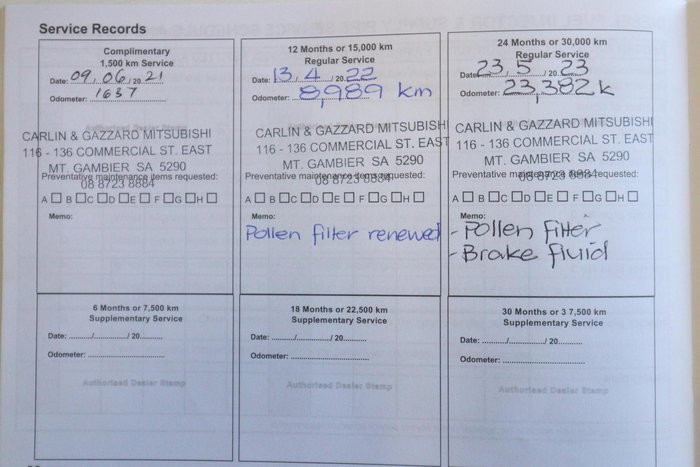 Service Records
Complimentary
1,500 km Service
Date: 09 / 06 / 20 21
Odometer: 1637
CARLIN & GAZZARD MITSUBISHI
116 - 136 COMMERCIAL ST. EAST
MT. GAMBIER SA 5290
08 8723 8884
Preventative maintenance items requested:
A □ B □ C □ D □ E □ F □ G □ H □
Memo:
12 Months or 15,000 km
Regular Service
Date: 13 / 4 / 20 22
Odometer: 8,989 km
CARLIN & GAZZARD MITSUBISHI
116 - 136 COMMERCIAL ST. EAST
MT. GAMBIER SA 5290
08 8723 8884
Preventative maintenance items requested:
A □ B □ C □ D □ E □ F □ G □ H □
Memo:
Pollen filter renewed
24 Months or 30,000 km
Regular Service
Date: 23 / 5 / 20 23
Odometer: 23,382 k
CARLIN & GAZZARD MITSUBISHI
116 - 136 COMMERCIAL ST. EAST
MT. GAMBIER SA 5290
08 8723 8884
Preventative maintenance items requested:
A □ B □ C □ D □ E □ F □ G □ H □
Memo:
- Pollen filter
- Brake fluid
6 Months or 7,500 km
Supplementary Service
Date: ........../........../ 20..........
Odometer: ..............................
Authorised Dealer Stamp
18 Months or 22,500 km
Supplementary Service
Date: ........../........../ 20..........
Odometer: ..............................
Authorised Dealer Stamp
30 Months or 3 7,500 km
Supplementary Service
Date: ........../........../ 20..........
Odometer: ..............................
Authorised Dealer Stamp